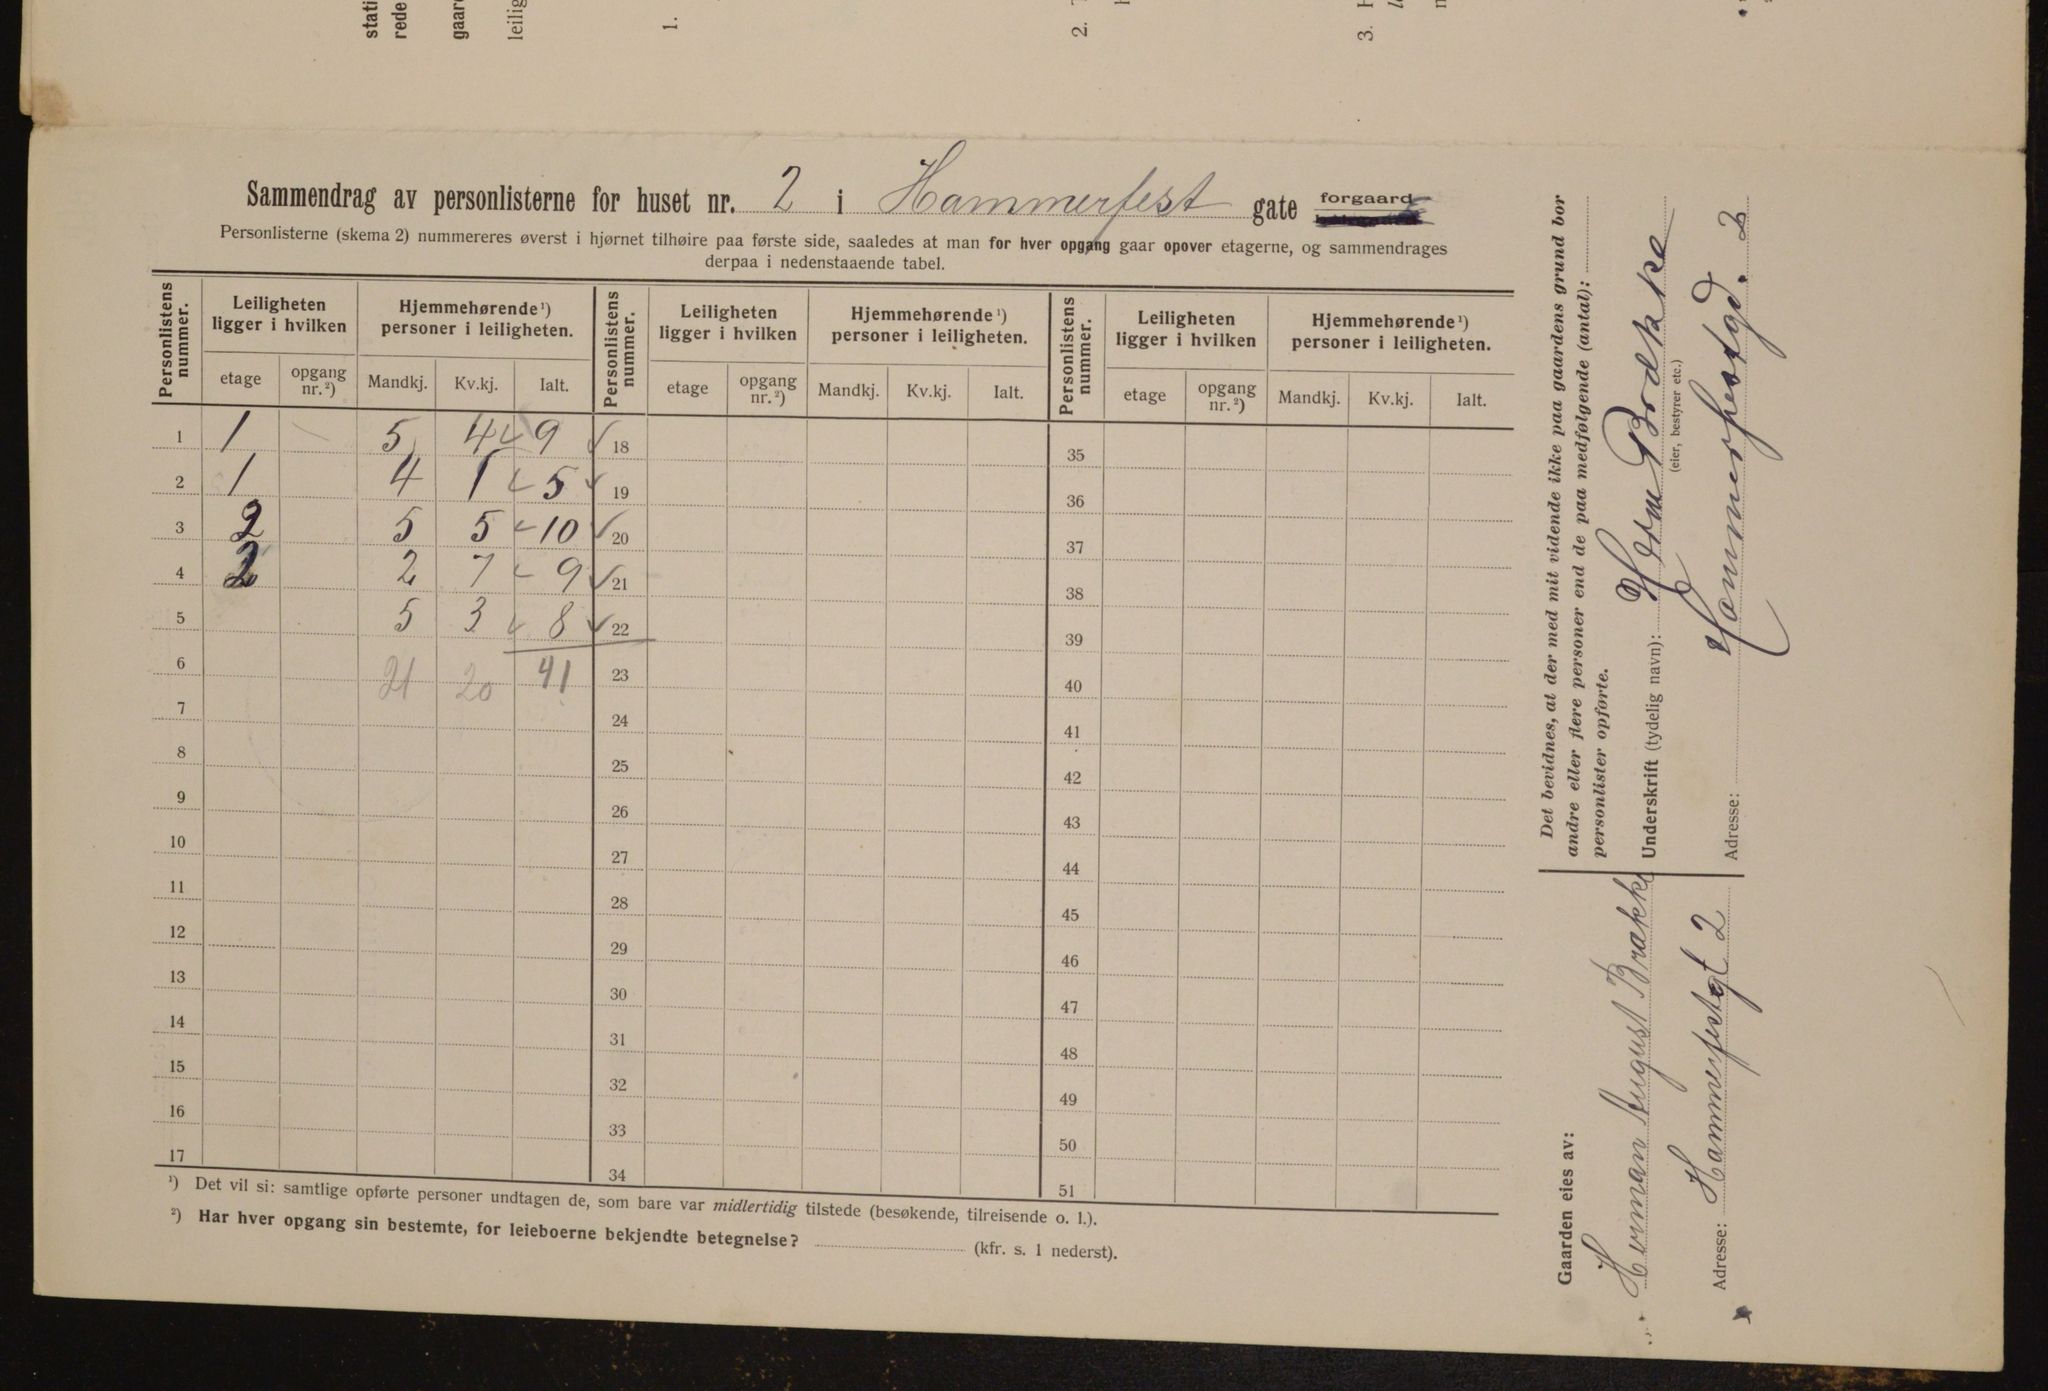 stati
rede
gaard
leilig
1.
2.
3.
Sammendrag av personlisterne for huset nr. 2 i Hammerfest gate forgaard
Personlisterne (skema 2) nummereres øverst i hjørnet tilhøire paa første side, saaledes at man for hver opgang gaar opover etagerne, og sammendrages
derpaa i nedenstaaende tabel.
Personlistens nummer. Leiligheten ligger i hvilken Hjemmehørende¹) personer i leiligheten. Personlistens nummer. Leiligheten ligger i hvilken Hjemmehørende¹) personer i leiligheten. Personlistens nummer. Leiligheten ligger i hvilken Hjemmehørende¹) personer i leiligheten.
etage opgang nr.²) Mandkj. Kv.kj. Ialt. etage opgang nr.²) Mandkj. Kv.kj. Ialt. etage opgang nr.²) Mandkj. Kv.kj. Ialt.
1 1 5 4 9 18 35
2 1 4 1 5 19 36
3 2 5 5 10 20 37
4 2 2 7 9 21 38
5 5 3 8 22 39
6 21 20 41 23 40
7 24 41
8 25 42
9 26 43
10 27 44
11 28 45
12 29 46
13 30 47
14 31 48
15 32 49
16 33 50
17 34 51
¹) Det vil si: samtlige opførte personer undtagen de, som bare var midlertidig tilstede (besøkende, tilreisende o. l.).
²) Har hver opgang sin bestemte, for leieboerne bekjendte betegnelse? (kfr. s. 1 nederst).
Gaarden eies av:
Herman August Brakke
Adresse: Hammerfestgt 2
Det bevidnes, at der med mit vidende ikke paa gaardens grund bor
andre eller flere personer end de paa medfølgende (antal):
personlister opførte.
Underskrift (tydelig navn): Herm Brakke
(eier, bestyrer etc.)
Adresse: Hammerfestgd. 2